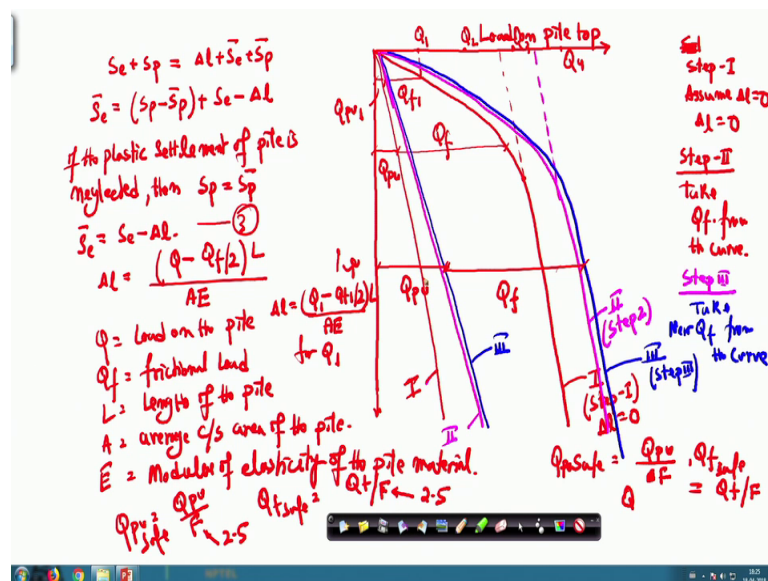 Se + Sp = Δl + S̄e + S̄p
S̄e = (Sp - S̄p) + Se - Δl
If the plastic settlement of pile is
neglected, then Sp = S̄p
S̄e = Se - Δl. — ③
Δl = (Q - Qf/2) L / AE
Q = Load on the pile
Qf = frictional load
L = Length of the pile
A = average c/s area of the pile.
E = Modulus of elasticity of the pile material.
Qpu safe = Qpu/F ← 2.5
Qf safe = Qf/F ← 2.5
Δl = (Q1 - Qf1/2) L / AE
for Q1
Q1
Q2
Load on pile top
Q4
Qpu1
Qf1
Qpu
Qf
Qpu
Qf
I
II
III
II
(Step 2)
III
(Step III)
I
(Step-I)
Δl = 0
Qpu safe = Qpu/F, Qf safe = Qf/F
Q
Step-I
Assume Δl=0
Δl = 0
Step-II
Take
Qf from
the curve.
Step III
Take
New Qf from
the curve
18:25